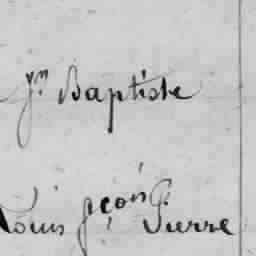 Jn Baptiste
Louis fçois Pierre